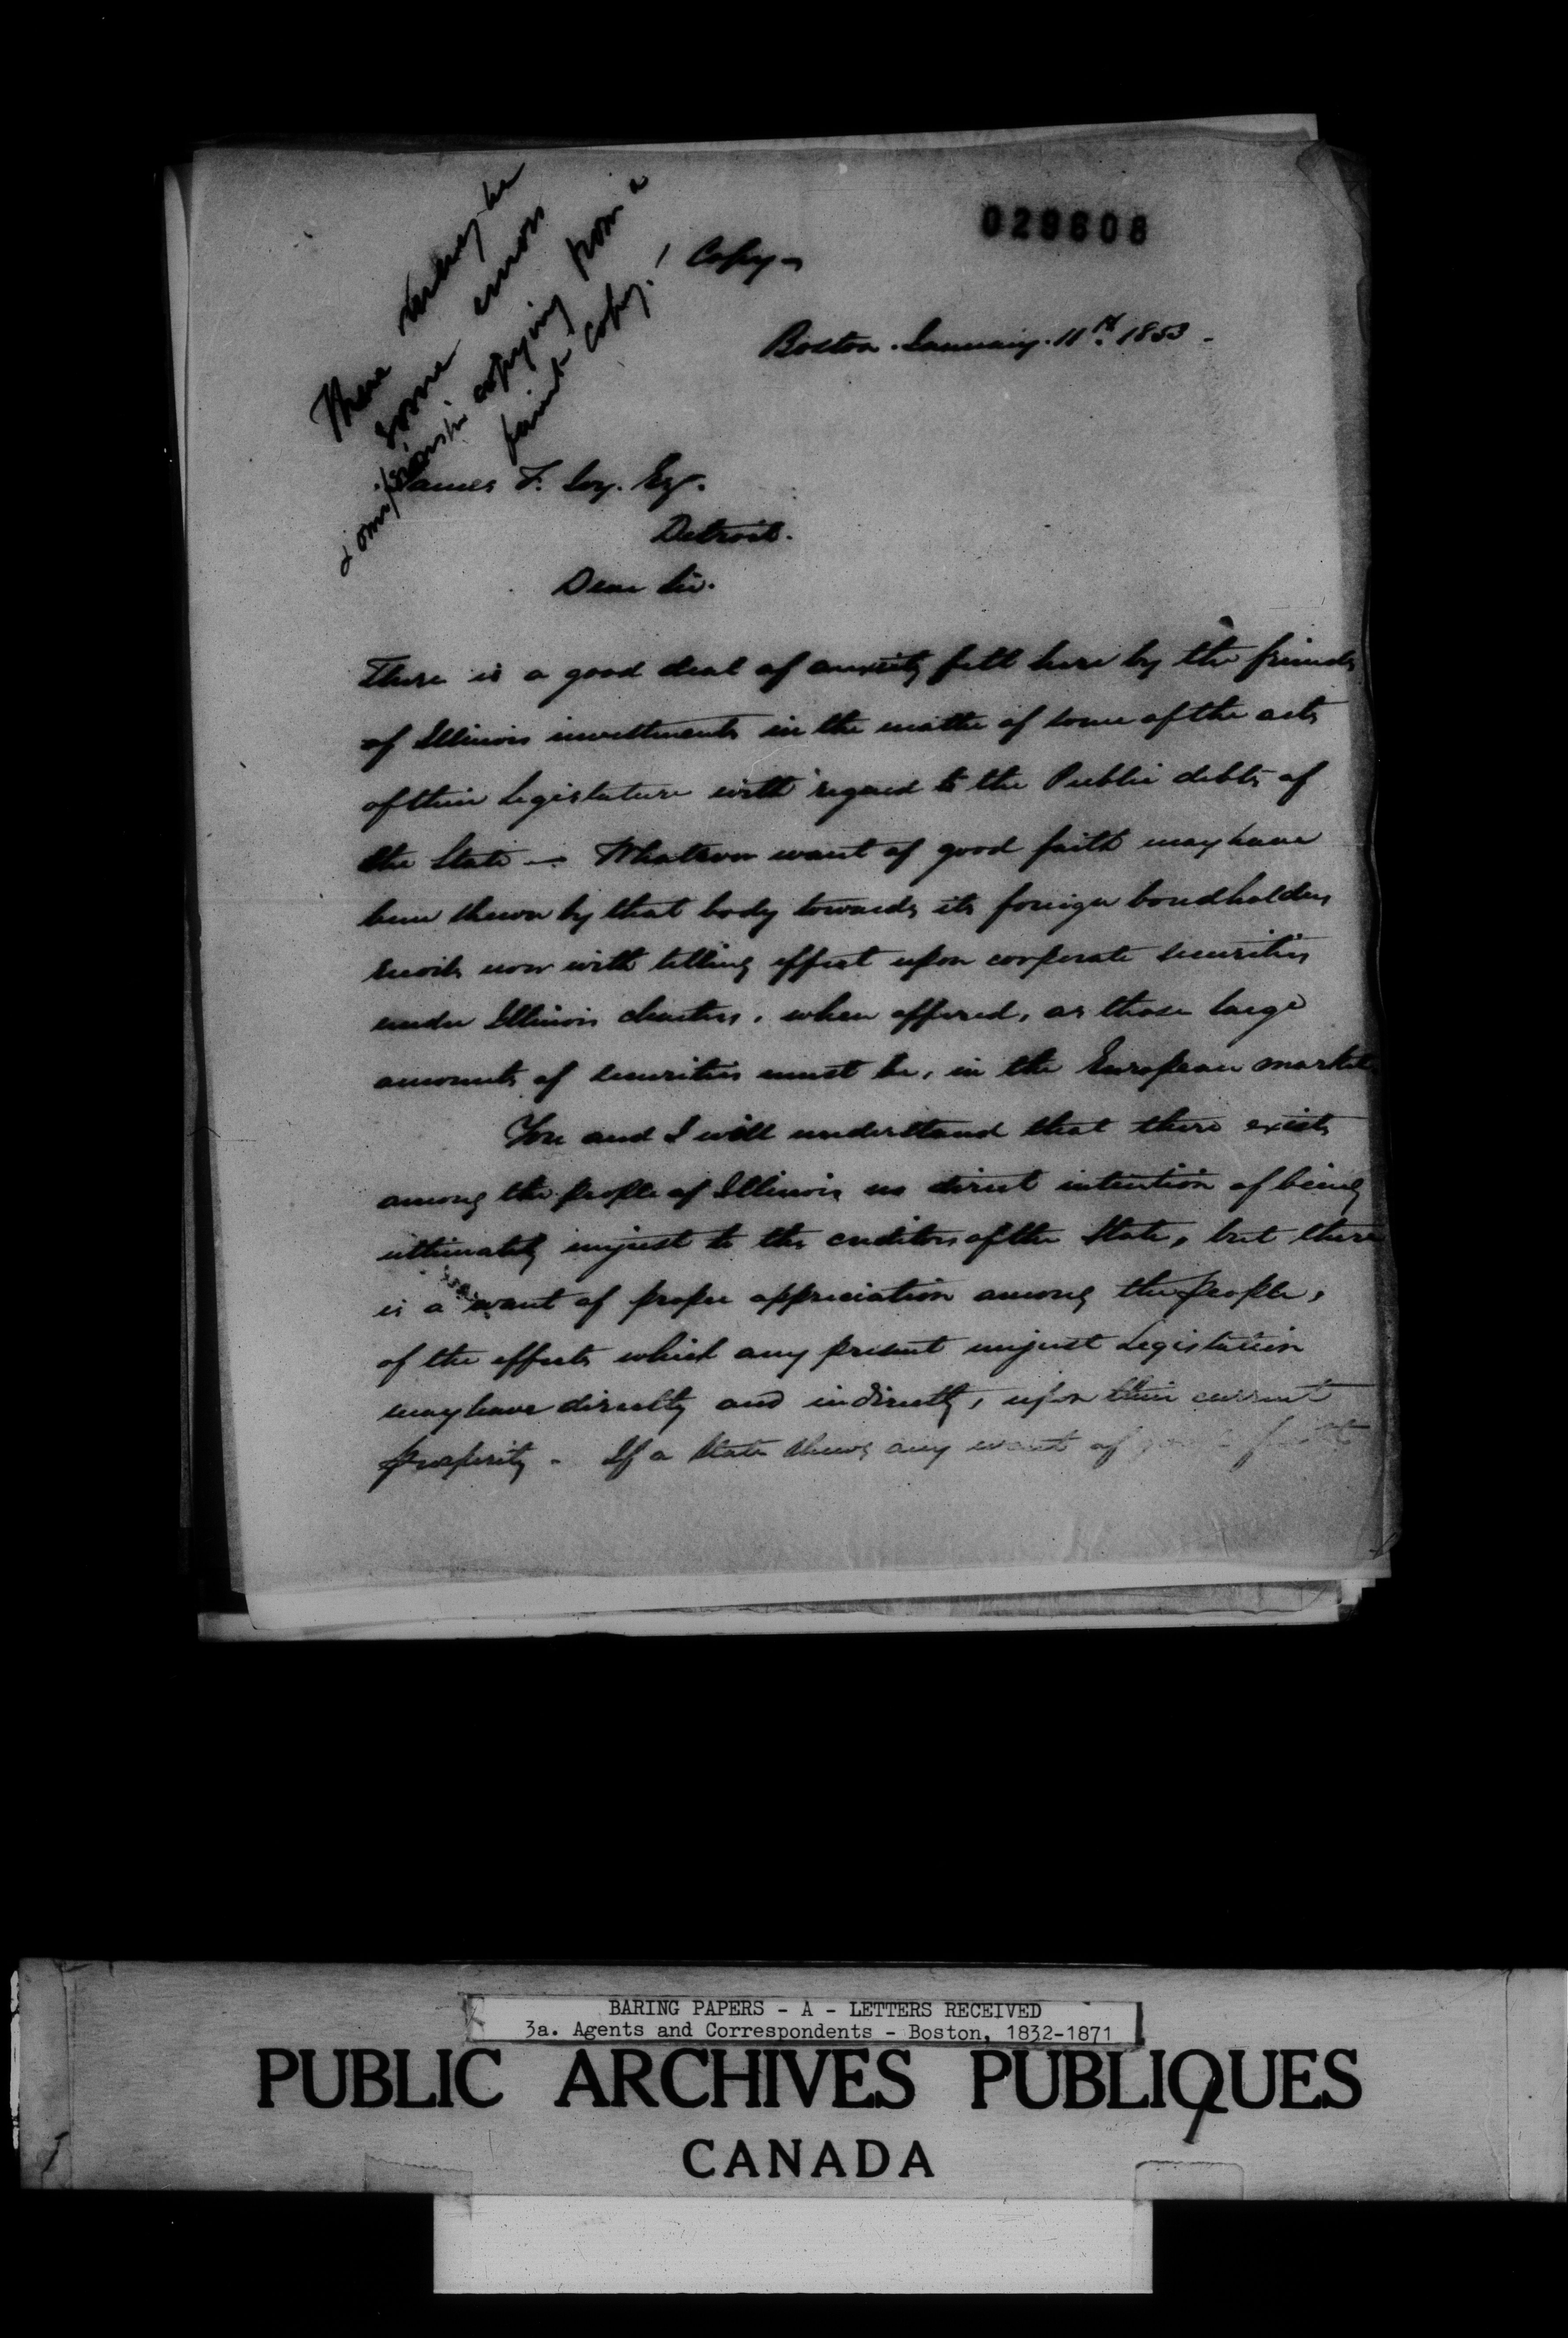 029608
There may be
some errors
& omissions in copying from a
faint copy!
Copy -
Boston. January. 11th. 1853.
James F. Joy. Esq.
Detroit.
Dear Sir.
There is a good deal of anxiety felt here by the friends
of Illinois investments in the matter of some of the acts
of their Legislature with regard to the Public debts of
the State — Whatever want of good faith may have
been shewn by that body towards its foreign bondholders
recoils now with telling effect upon corporate securities
under Illinois charters, when offered, as those large
amounts of securities must be, in the European market
You and I will understand that there exists
among the people of Illinois no direct intention of being
ultimately unjust to the creditors of the State, but there
is a want of proper appreciation among the people,
of the effects which any present unjust Legislation
may have directly and indirectly, upon their current
prosperity - If a State shews any want of good faith
BARING PAPERS - A - LETTERS RECEIVED
3a. Agents and Correspondents - Boston, 1832-1871
PUBLIC ARCHIVES PUBLIQUES
CANADA